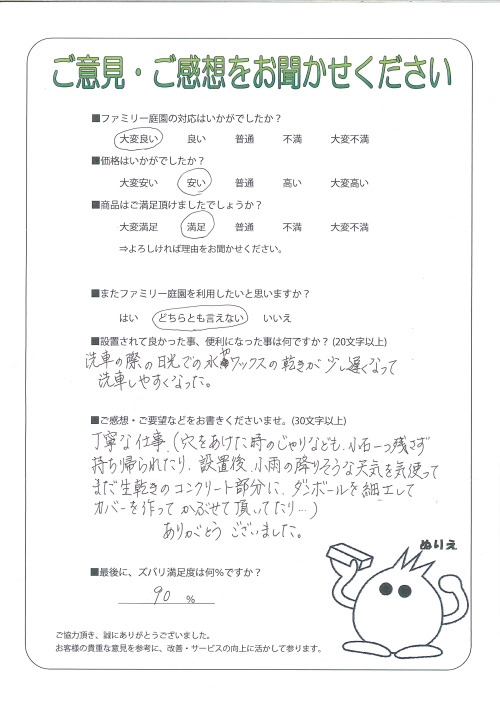 ご意見・ご感想をお聞かせください
■ファミリー庭園の対応はいかがでしたか？
大変良い 良い 普通 不満 大変不満
■価格はいかがでしたか？
大変安い 安い 普通 高い 大変高い
■商品はご満足頂けましたでしょうか？
大変満足 満足 普通 不満 大変不満
⇒よろしければ理由をお聞かせください。
■またファミリー庭園を利用したいと思いますか？
はい どちらとも言えない いいえ
■設置されて良かった事、便利になった事は何ですか？(20文字以上)
洗車の際の日光での水やワックスの乾きが少し遅くなって
洗車しやすくなった。
■ご感想・ご要望などをお書きくださいませ。(30文字以上)
丁寧な仕事。(穴をあけた時のじゃりなども、小石一つ残さず
持ち帰られたり、設置後、小雨の降りそうな天気を気使って
まだ生乾きのコンクリート部分に、ダンボールを細工して
カバーを作ってかぶせて頂いてたり…)
ありがとうございました。
ぬりえ
■最後に、ズバリ満足度は何%ですか？
90 %
ご協力頂き、誠にありがとうございました。
お客様の貴重な意見を参考に、改善・サービスの向上に活かして参ります。